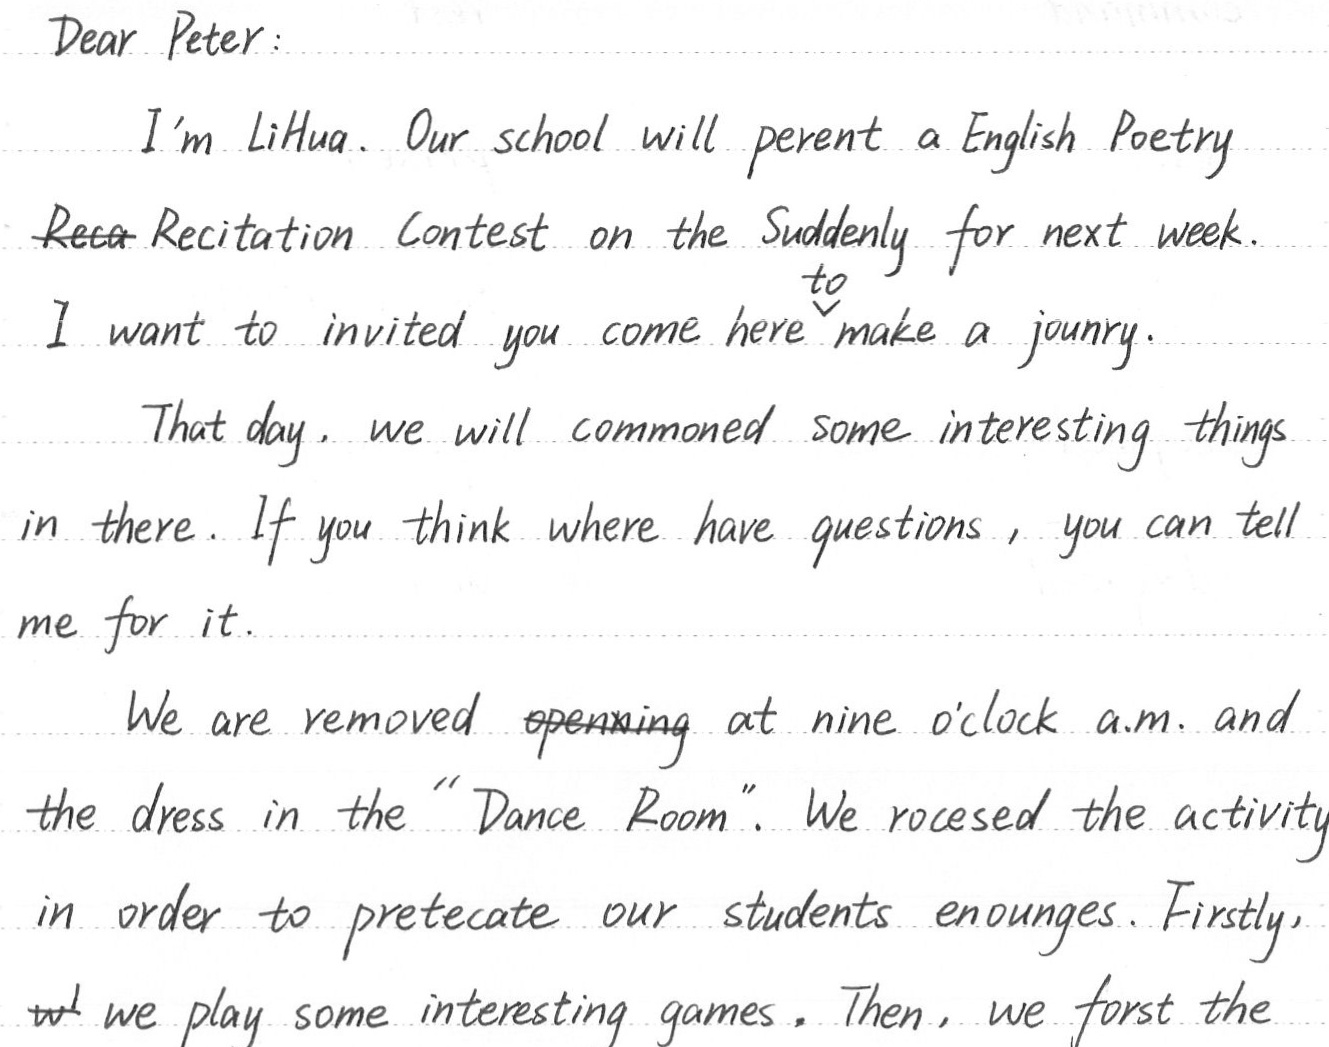 Dear Peter:
I'm LiHua. Our school will perent a English Poetry
Reca Recitation Contest on the Suddenly for next week.
to
I want to invited you come here make a jounry.
That day, we will commoned some interesting things
in there. If you think where have questions, you can tell
me for it.
We are removed openning at nine o'clock a.m. and
the dress in the "Dance Room". We rocesed the activity
in order to pretecate our students enounges. Firstly,
we play some interesting games. Then, we forst the